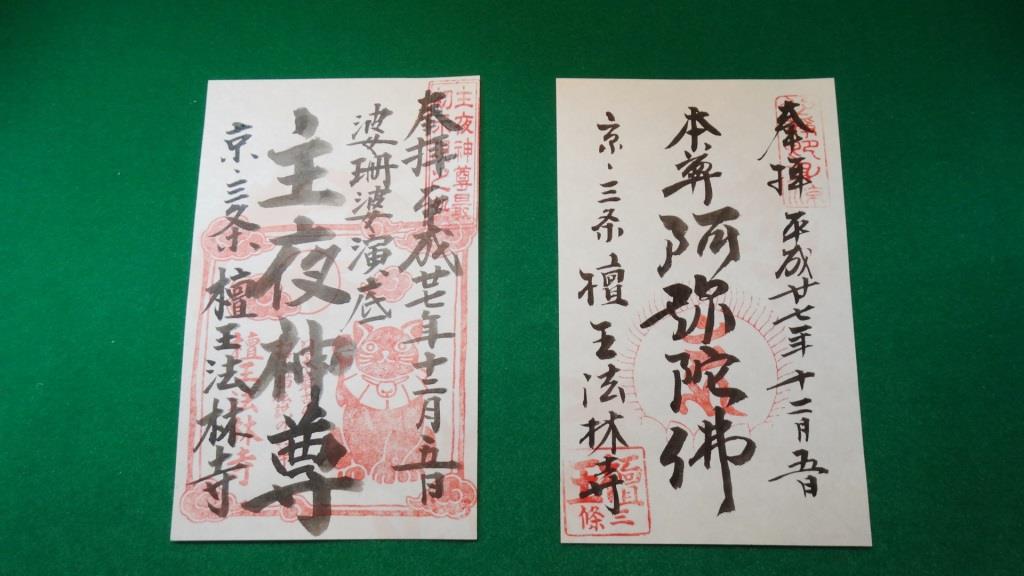 奉拝 平成廿七年十二月五日
婆珊婆演底
主夜神尊
京、三条 檀王法林寺
主夜神尊最
檀王法林寺
奉拝 平成廿七年十二月五日
本尊 阿弥陀佛
京、三条 檀王法林寺
檀三
王條